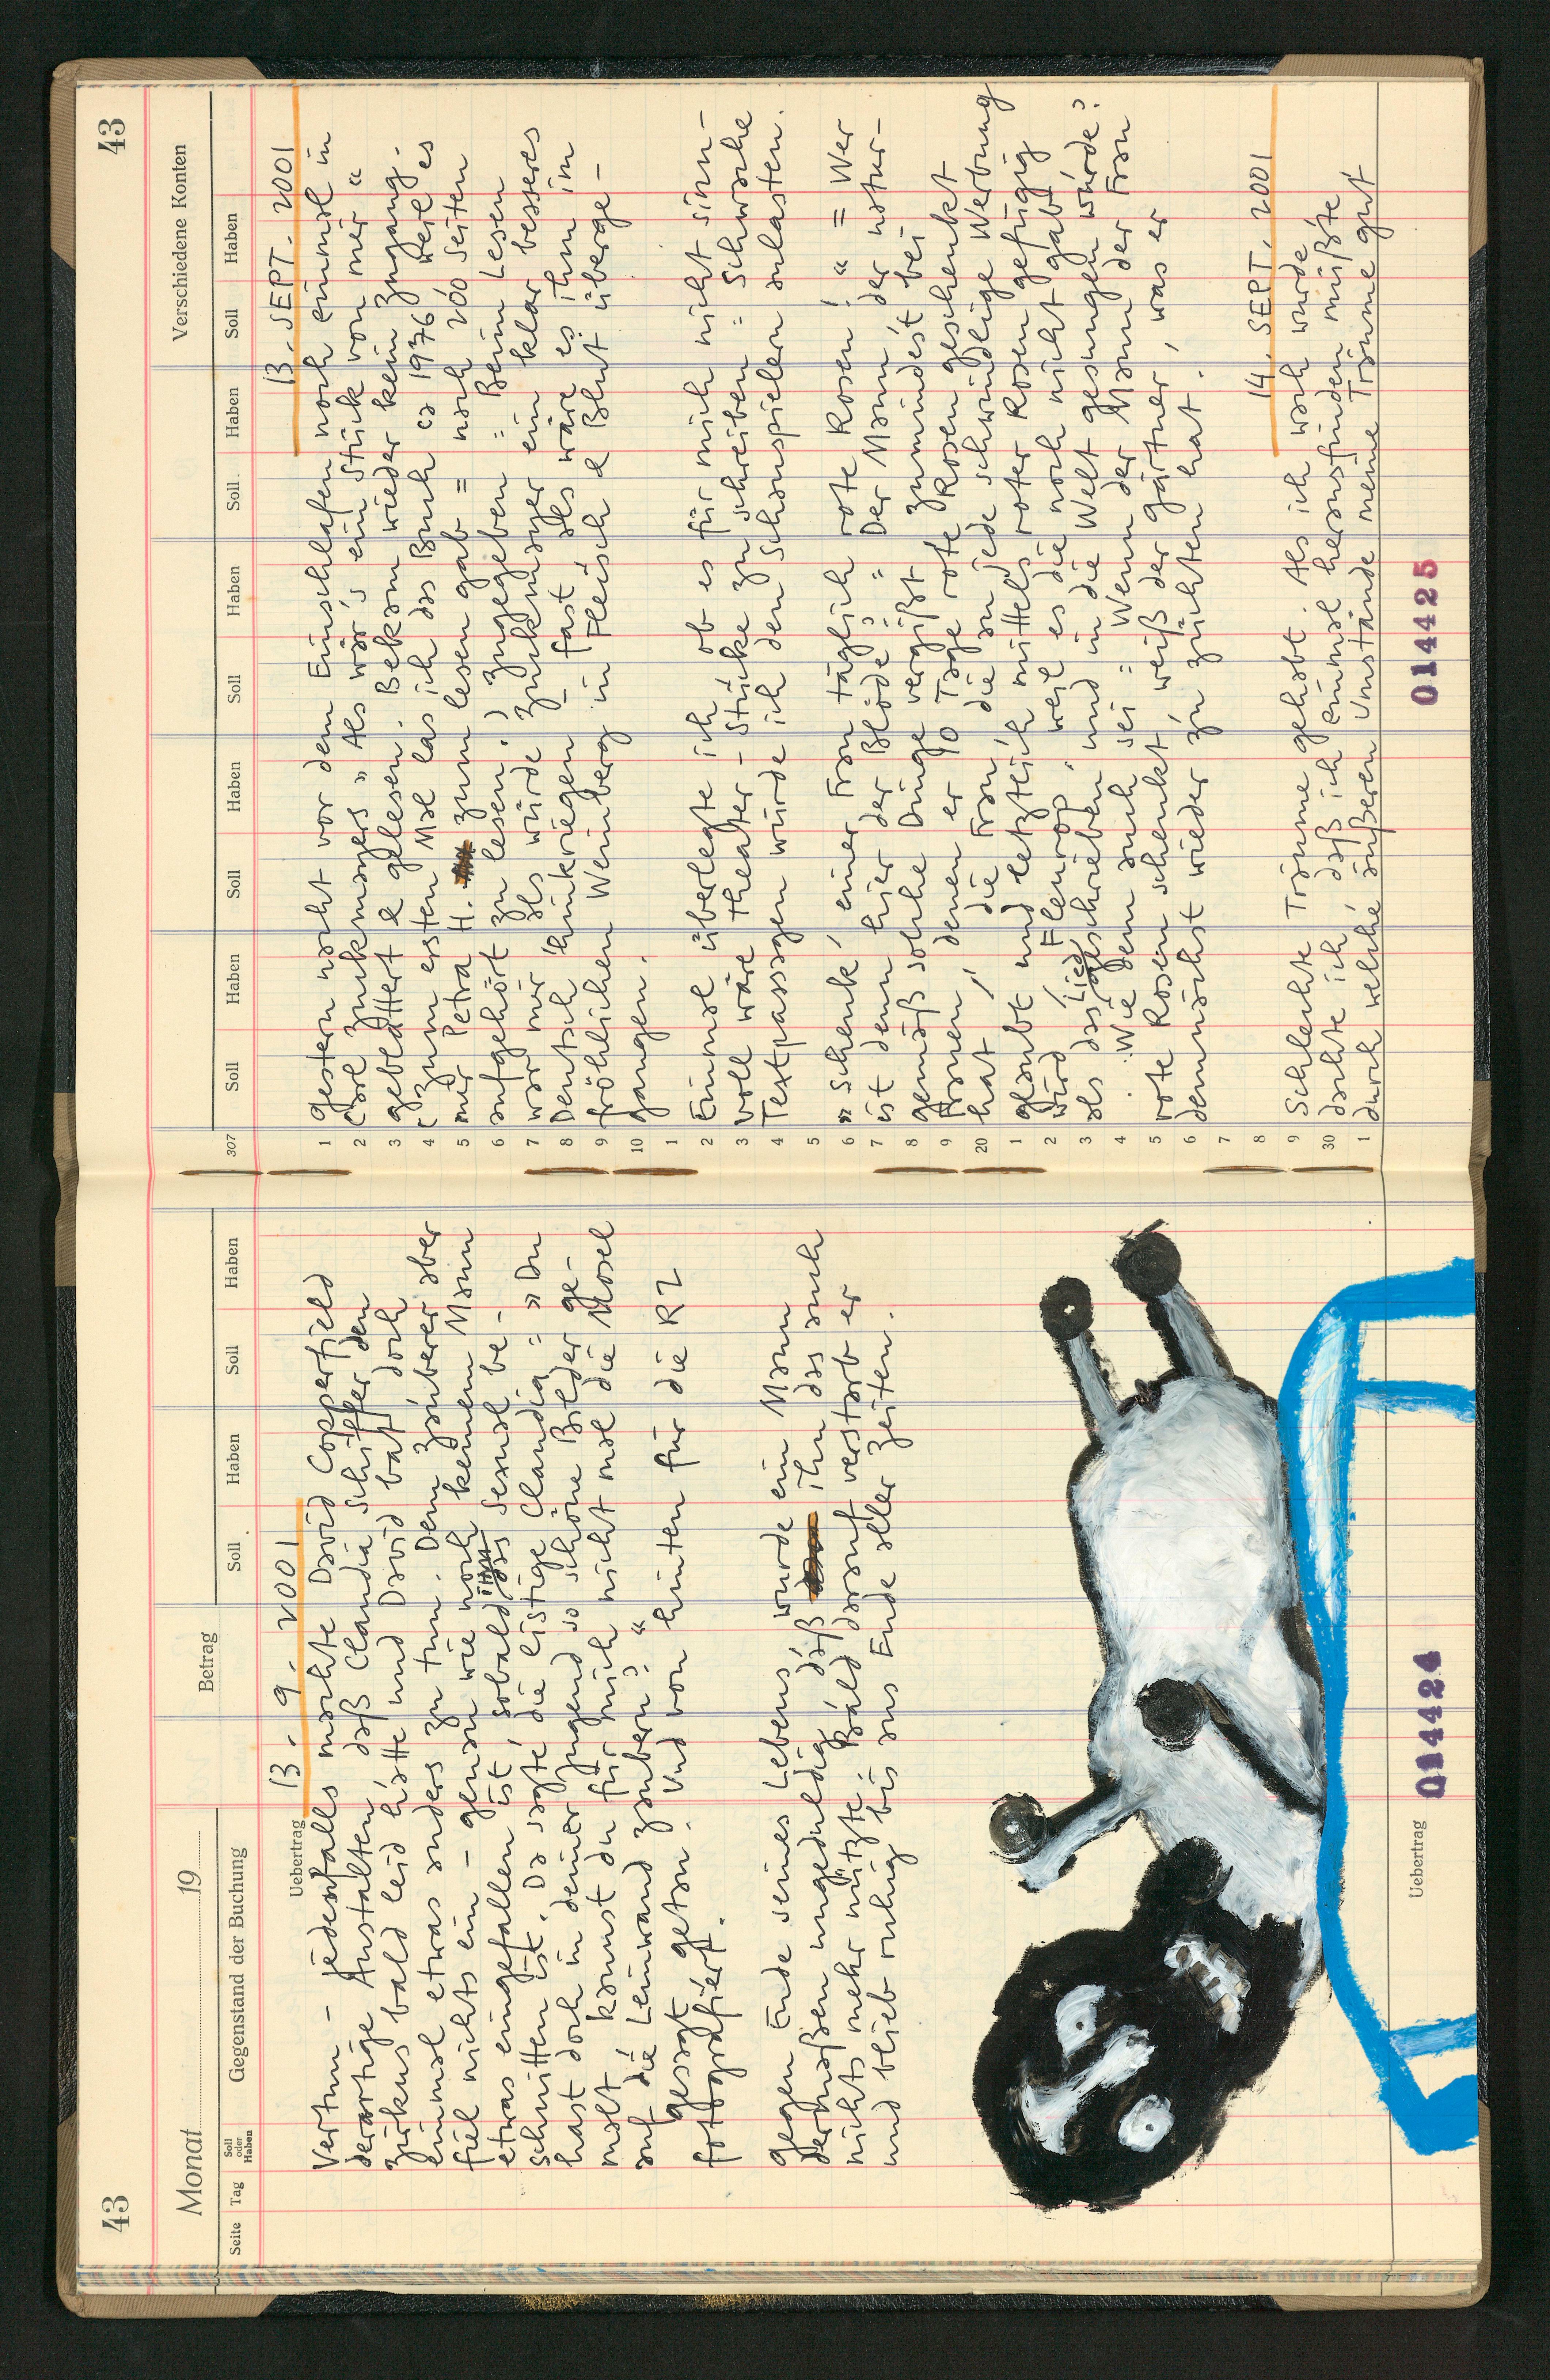 43
Monat 19
Betrag
Seite Tag Soll oder Haben Gegenstand der Buchung Soll Haben Soll Haben
Uebertrag 13. 9. 2001
Vertun – jedenfalls machte David Copperfield
derartige Anstalten, daß Claudia Schiffer den
Zirkus bald leid hätte und David bat doch
einmal etwas anders zu tun. Dem Zauberer aber
fiel nichts ein – genau wie noch keinem Mann
etwas eingefallen ist, sobald ihm das Sexual be-
schnitten ist. Da sagte die listige Claudia = » Du
hast doch in deiner Jugend so schöne Bilder ge-
malt, kannst du für mich nicht mal die Mosel
auf die Leinwand zaubern? «
gesagt getan. Und von hinten für die RZ
fotografiert.
gegen Ende seines Lebens, wurde ein Mann
dermaßen ungeduldig, daß ihn das auch
nichts mehr nützte. Bald darauf verstarb er
und blieb ruhig bis ans Ende aller Zeiten.
Uebertrag
014424
43
Verschiedene Konten
307 Soll Haben Soll Haben Soll Haben Soll Haben Soll Haben
13. SEPT. 2001
1 gestern nacht vor dem Einschlafen noch einmal in
2 Carl Zuckmayers » Als wär's ein Stück von mir «
3 geblättert & gelesen. Bekam wieder kein Zugang.
4 (Zum ersten Mal las ich das Buch ca 1976 weil es
5 mir Petra H. zum lesen gab = nach 200 Seiten
6 aufgehört zu lesen.) Zugegeben = Beim Lesen
7 war mir als würde Zuckmayer ein klar besseres
8 Deutsch hinkriegen – fast als wäre es ihm im
9 fröhlichen Weinberg in Fleisch & Blut überge-
10 gangen.
1
2 Einmal überlegte ich ob es für mich nicht sinn-
3 voll wäre Theater-Stücke zu schreiben = Schwache
4 Textpassagen würde ich den Schauspielern anlasten.
5
6 » Schenk, einer Frau täglich rote Rosen! « = Wer
7 ist denn hier der Blöde? = Der Mann, der natur-
8 gemäß solche Dinge vergißt zumindest bei
9 Frauen, denen er 10 Tage rote Rosen geschenkt
20 hat, / die Frau die an jede schwindlige Werbung
1 glaubt und letztlich mittels roter Rosen gefügig
2 wird, Fleurop, weil es die noch nicht gab
3 als das Lied geschrieben und in die Welt gesungen wurde?
4 Wie dem auch sei = Wenn der Mann der Frau
5 rote Rosen schenkt weiß der gärtner, was er
6 demnächst wieder zu züchten hat.
7
8 14. SEPT. 2001
9 Schlechte Träume gehabt. Als ich wach wurde
30 dachte ich, daß ich einmal herausfinden müßte
1 durch welche äußeren Umstände meine Träume gut
014425